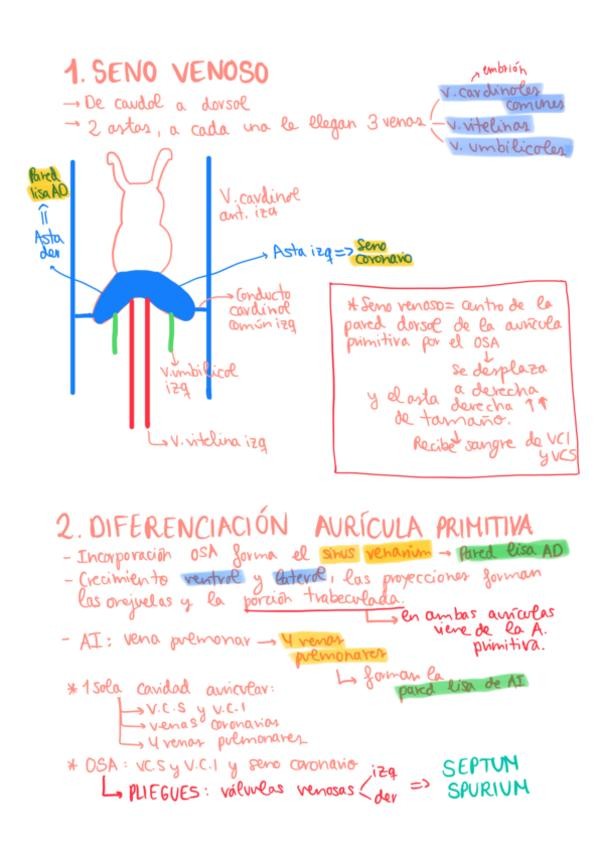 1. SENO VENOSO
→ De caudal a dorsal
→ 2 astas, a cada una le llegan 3 venas
embrión
v. cardinales comunes
v. vitelinas
v. umbilicales
Pared lisa AD
Asta der
V. cardinal ant. izq
Asta izq => Seno coronario
Conducto cardinal común izq
V. umbilical izq
V. vitelina izq
* Seno venoso = centro de la
pared dorsal de la aurícula
primitiva por el OSA
se desplaza
a derecha
y el asta derecha ↑↑
de tamaño.
Recibe sangre de VCI
y VCS
2. DIFERENCIACIÓN AURÍCULA PRIMITIVA
- Incorporación OSA forma el sinus venarium → Pared lisa AD
- Crecimiento ventral y lateral, las proyecciones forman
las orejuelas y la porción trabeculada.
en ambas aurículas
viene de la A.
primitiva.
- AI: vena pulmonar → 4 venas
pulmonares
forman la
pared lisa de AI
* 1 sola cavidad auricular:
→ V.C.S y V.C.I
→ venas coronarias
→ 4 venas pulmonares
* OSA: VC.S y V.C.I y seno coronario
PLIEGUES: válvulas venosas izq
der
=> SEPTUM
SPURIUM